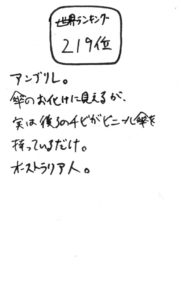 世界ランキング
219位
アンブリレ。
傘のお化けに見えるが、
実は後ろのチビがビニール傘を
持っているだけ。
オーストラリア人。